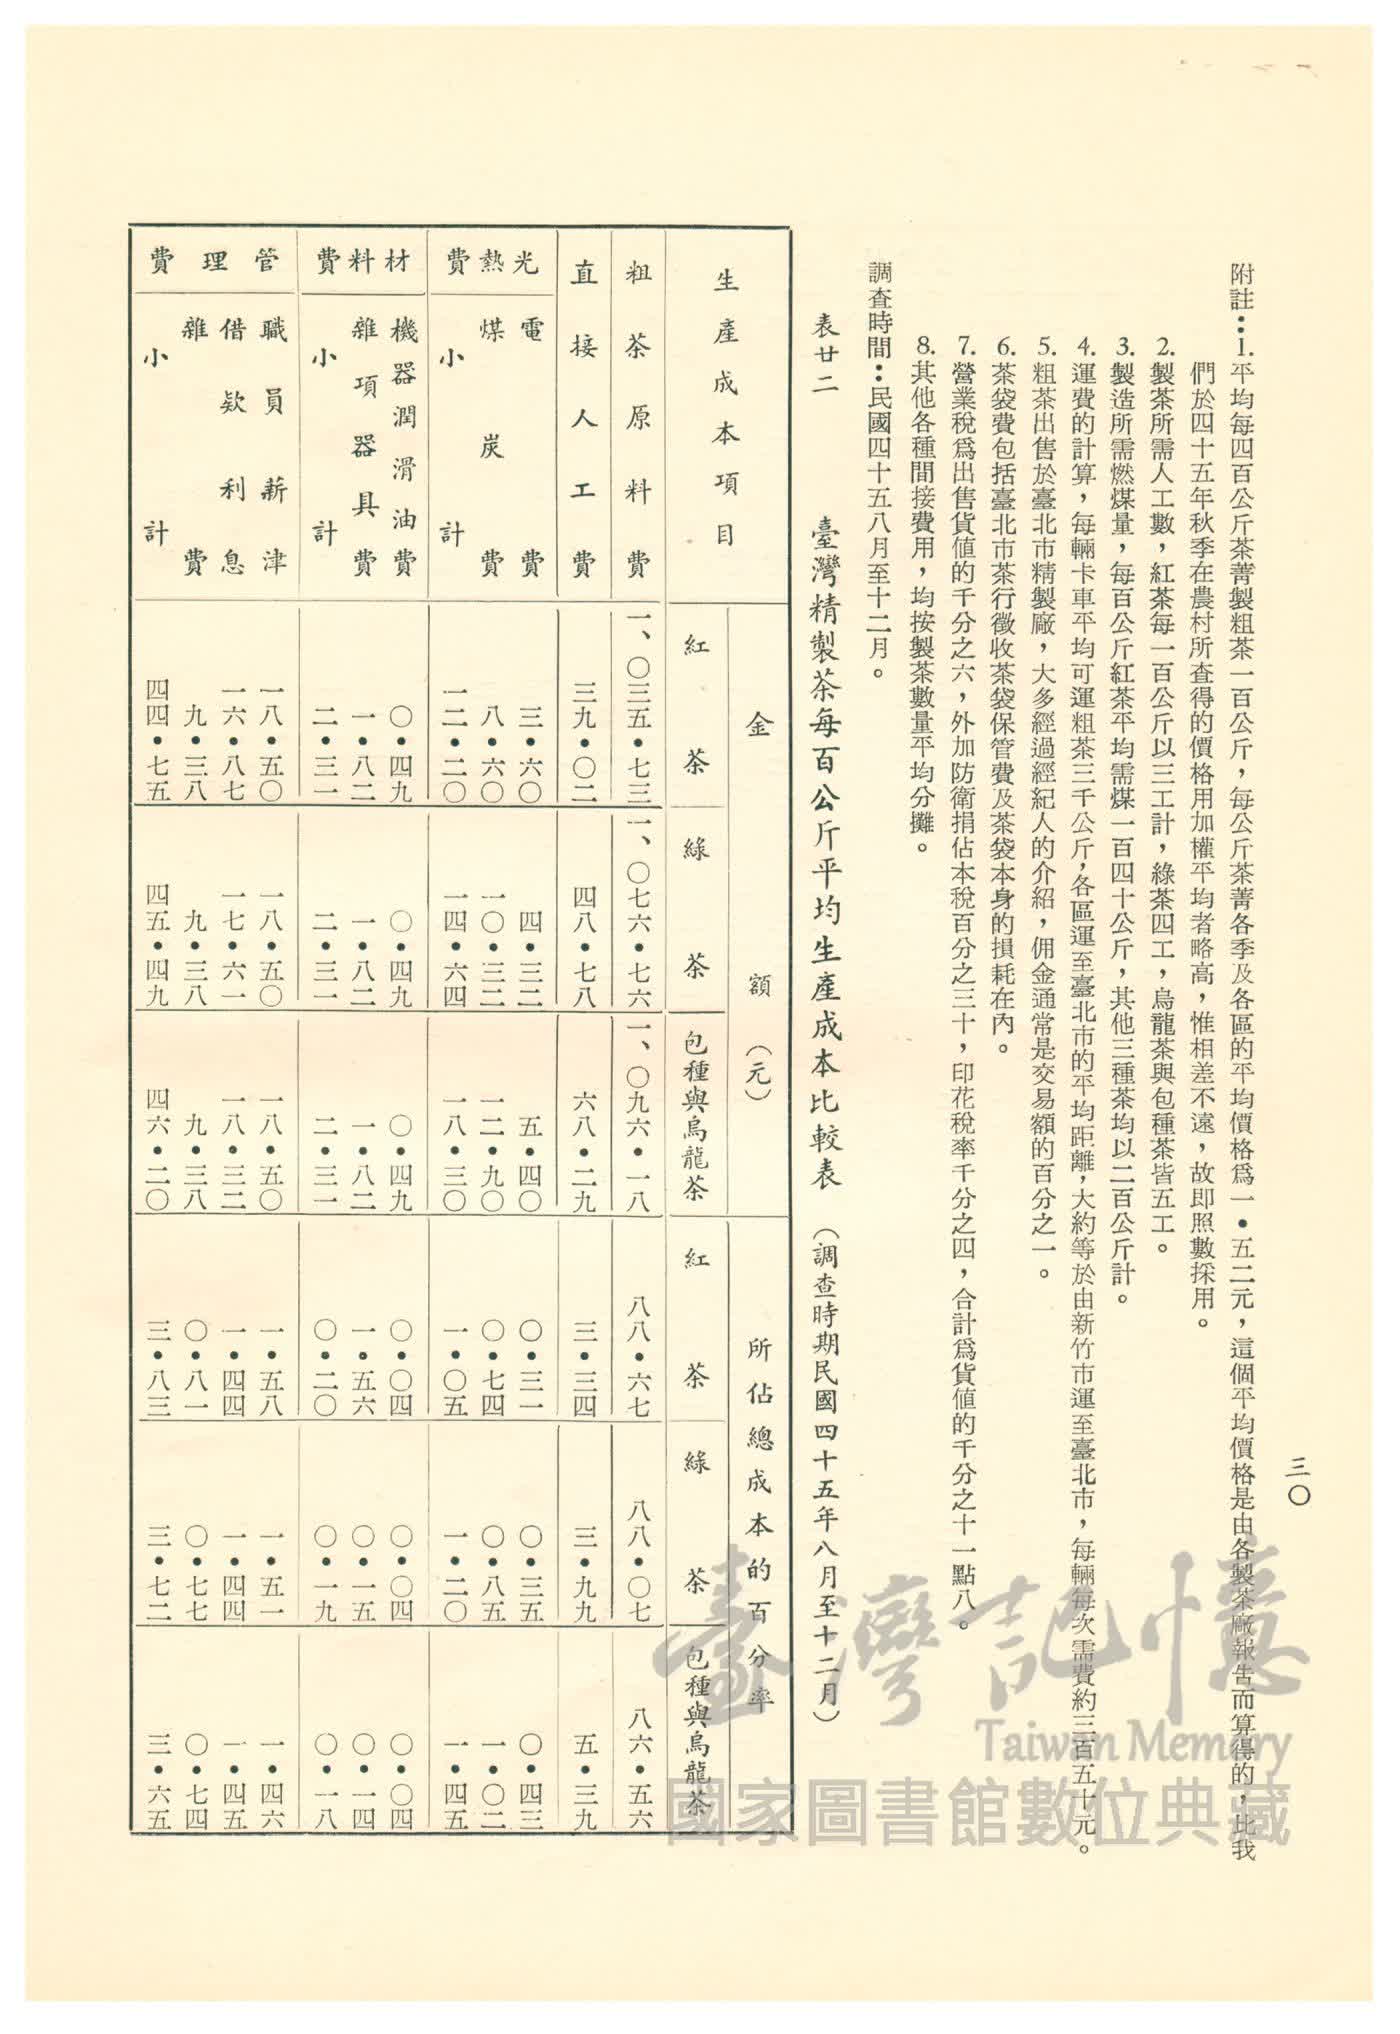 三〇
附註：1.平均每四百公斤茶菁製粗茶一百公斤，每公斤茶菁各季及各區的平均價格爲一・五二元，這個平均價格是由各製茶廠報告而算得的，比我
們於四十五年秋季在農村所查得的價格用加權平均者略高，惟相差不遠，故即照數採用。
2.製茶所需人工數，紅茶每一百公斤以三工計，綠茶四工，烏龍茶與包種茶皆五工。
3.製造所需燃煤量，每百公斤紅茶平均需煤一百四十公斤，其他三種茶均以二百公斤計。
4.運費的計算，每輛卡車平均可運粗茶三千公斤，各區運至臺北市的平均距離，大約等於由新竹市運至臺北市，每輛每次需費約三百五十元。
5.粗茶出售於臺北市精製廠，大多經過經紀人的介紹，佣金通常是交易額的百分之一。
6.茶袋費包括臺北市茶行徵收茶袋保管費及茶袋本身的損耗在內。
7.營業稅爲出售貨値的千分之六，外加防衛捐佔本稅百分之三十，印花稅率千分之四，合計爲貨値的千分之十一點八。
8.其他各種間接費用，均按製茶數量平均分攤。
調查時間：民國四十五八月至十二月。
表廿二 臺灣精製茶每百公斤平均生產成本比較表 （調查時期民國四十五年八月至十二月）
生產成本項目 金額（元） 所佔總成本的百分率
紅茶 綠茶 包種與烏龍茶 紅茶 綠茶 包種與烏龍茶
粗茶原料費 一、〇三五・七三 一、〇七六・七六 一、〇九六・一八 八八・六七 八八・〇七 八六・五六
直接人工費 三九・〇二 四八・七八 六八・二九 三・三四 三・九九 五・三九
光熱費 電費 三・六〇 四・三二 五・四〇 〇・三一 〇・三五 〇・四三
煤炭費 八・六〇 一〇・三二 一二・九〇 〇・七四 〇・八五 一・〇二
小計 一二・二〇 一四・六四 一八・三〇 一・〇五 一・二〇 一・四五
材料費 機器潤滑油費 〇・四九 〇・四九 〇・四九 〇・〇四 〇・〇四 〇・〇四
雜項器具費 一・八二 一・八二 一・八二 一・五六 〇・一五 〇・一四
小計 二・三一 二・三一 二・三一 〇・二〇 〇・一九 〇・一八
管理費 職員薪津 一八・五〇 一八・五〇 一八・五〇 一・五八 一・五一 一・四六
借欵利息 一六・八七 一七・六一 一八・三二 一・四四 一・四四 一・四五
雜費 九・三八 九・三八 九・三八 〇・八一 〇・七七 〇・七四
小計 四四・七五 四五・四九 四六・二〇 三・八三 三・七二 三・六五
臺灣記憶
Taiwan Memory
國家圖書館數位典藏